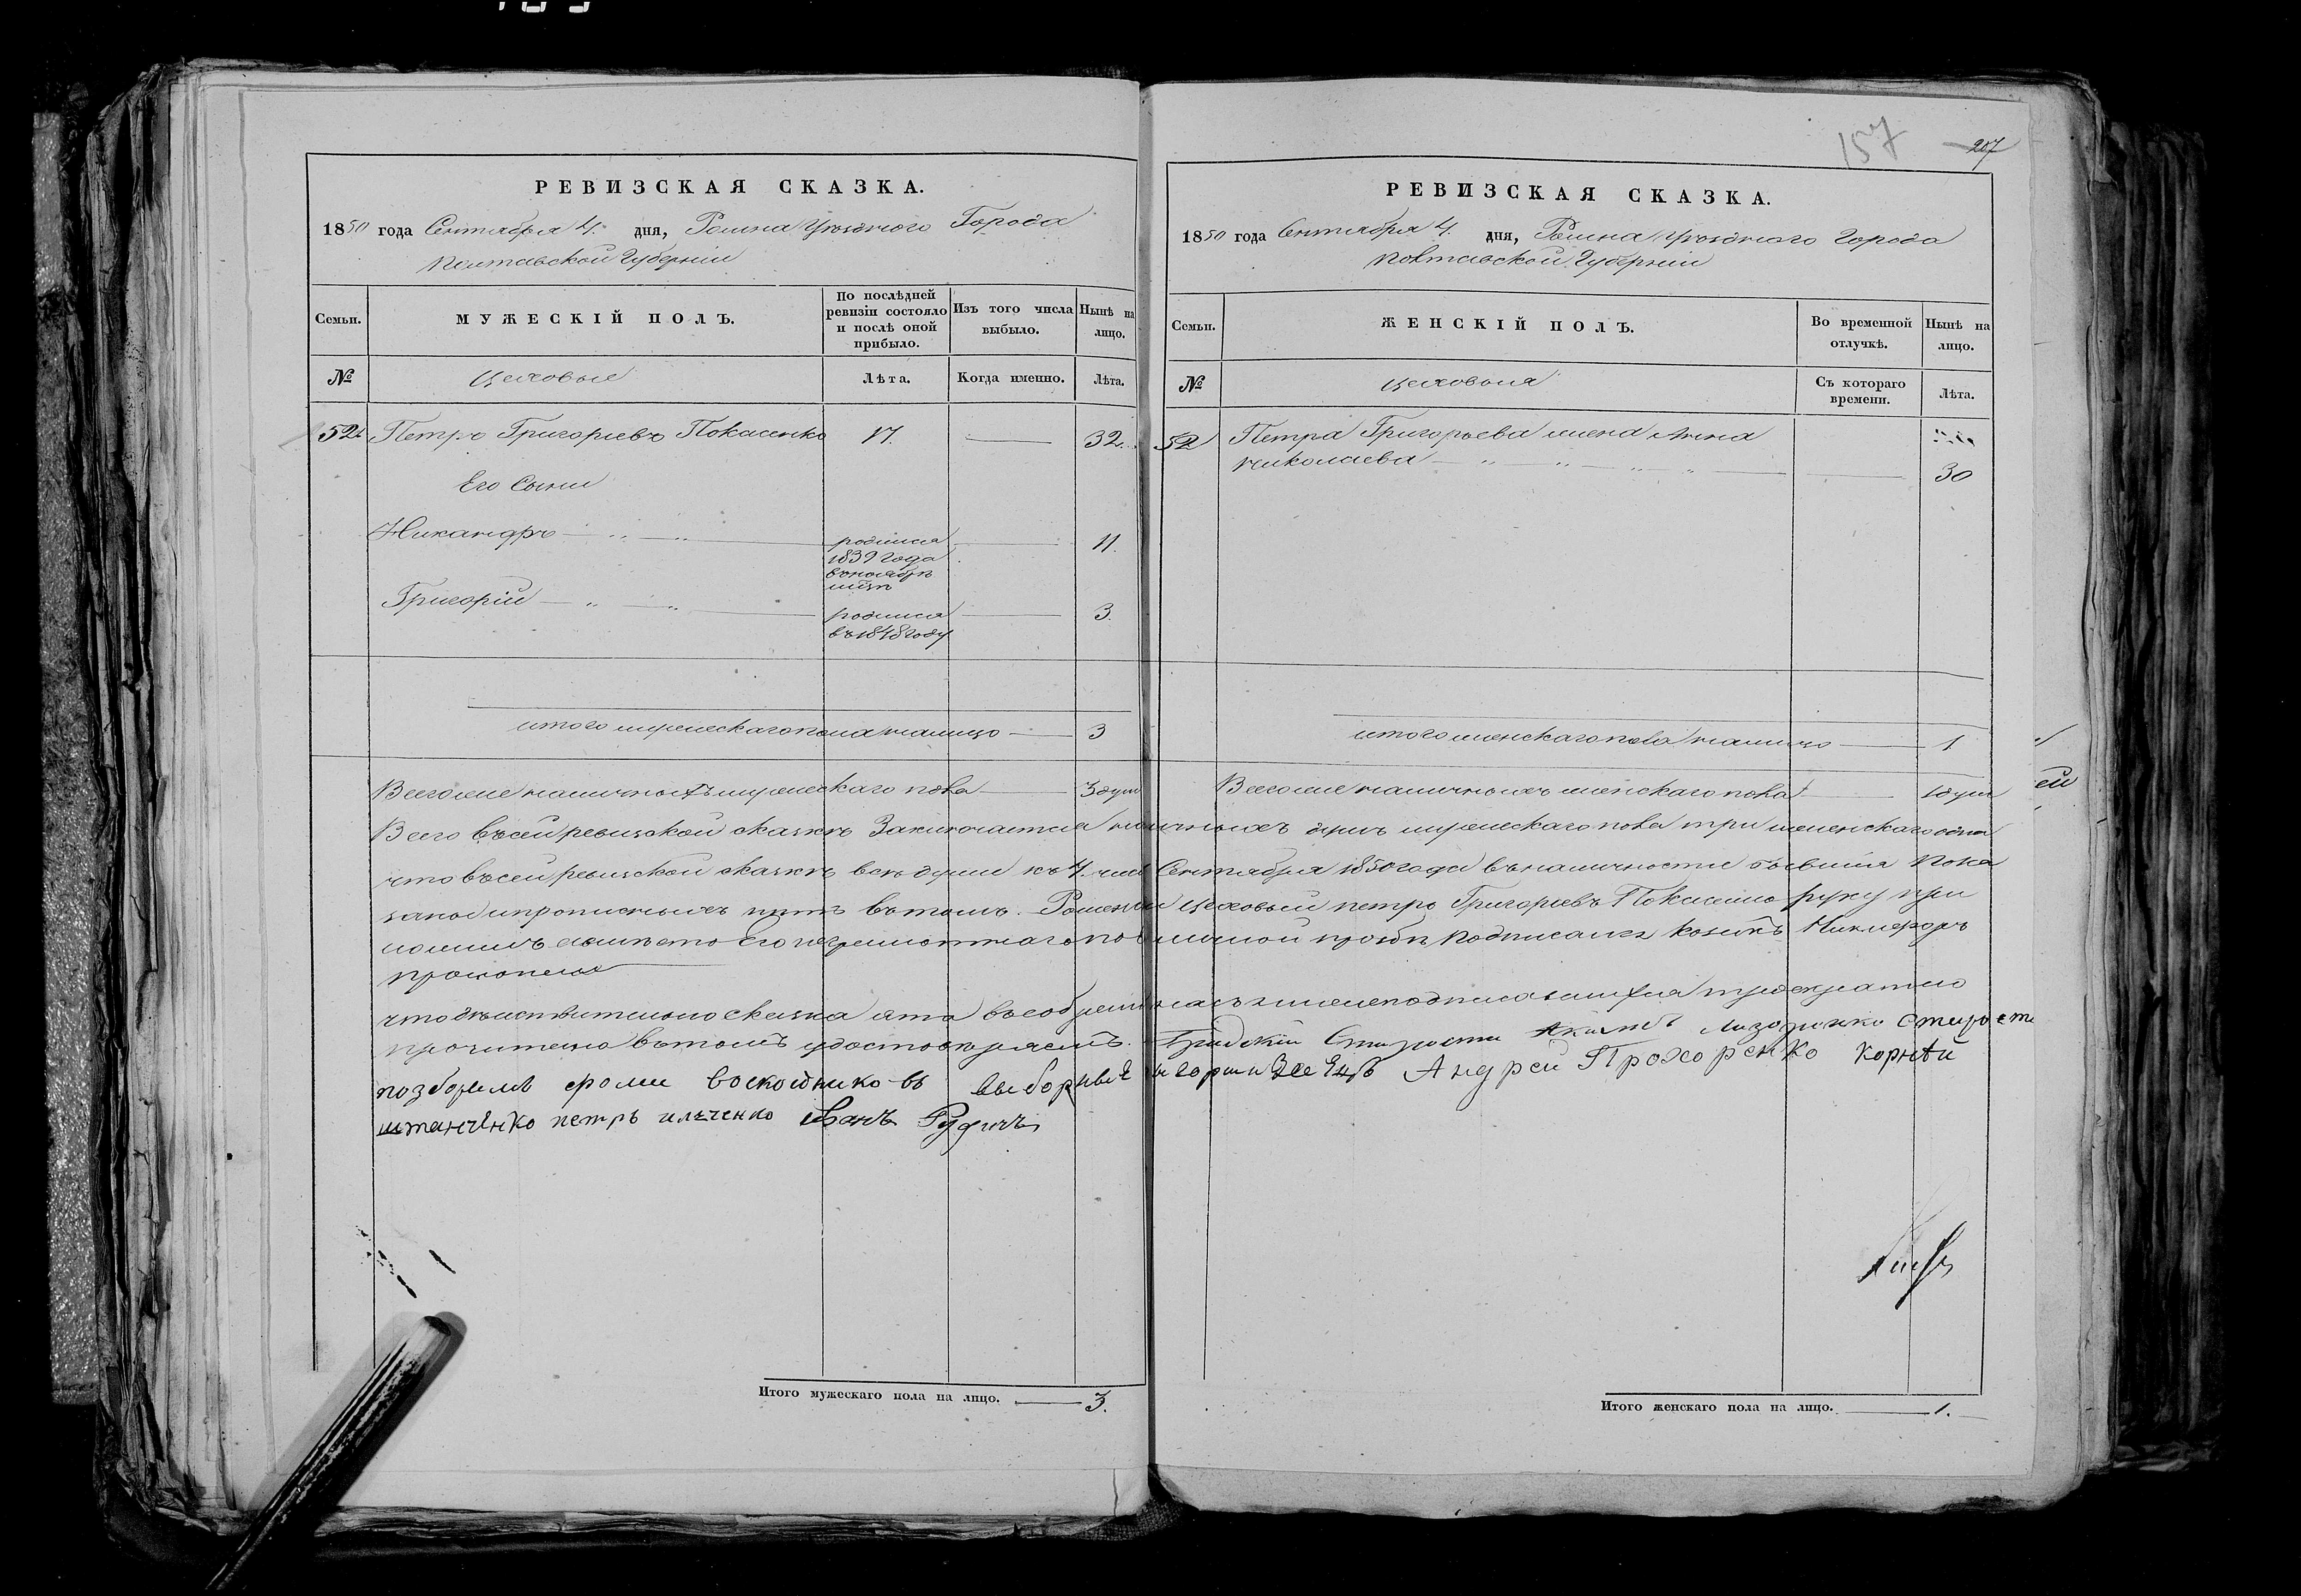 157
207
РЕВИЗСКАЯ СКАЗКА.
1850 года Сентября 4. дня, Ромна Уѣзднаго Города
Полтавской Губерніи
Семьи.
МУЖЕСКІЙ ПОЛЪ.
По послѣдней ревизіи состояло и послѣ оной прибыло.
Изъ того числа выбыло.
Нынѣ на лицо.
№
Цеховые
Лѣта.
Когда именно.
Лѣта.
52. Петръ Григорьевъ Покасенко 17. 32.
Его Сыны
Никандръ родился 11.
1839 года
въ ноябрѣ
мцѣ
Григорій родился 3.
въ 1848 году
итого мужескаго пола налицо 3
Всего же наличныхъ мужескаго пола 3 душ
РЕВИЗСКАЯ СКАЗКА.
1850 года Сентября 4. дня, Ромна Уѣзднаго Города
Полтавской Губерніи
Семьи.
ЖЕНСКІЙ ПОЛЪ.
Во временной отлучкѣ.
Нынѣ на лицо.
№
Цеховыя
Съ котораго времени.
Лѣта.
52 Петра Григорьева жена Анна
Николаева 30
итого женскаго пола налицо 1
Всего же наличныхъ женскаго пола 1 душ
Всего въ сей ревизской сказкѣ Заключается наличныхъ душъ мужескаго пола три женскаго одна
что въ сей ревизской сказкѣ всѣ души къ 4. числ Сентября 1850 года въ наличности бывшія пока
заны и прописныхъ нѣтъ въ томъ. Роменскій Цеховый петръ Григорьевъ Покасенко руку при
ложилъ а вмѣсто Его неграмотнаго по личной прозбѣ подписался козакъ Никифоръ
что дѣйствительно сказка эта въ собраніи нижеподписавшихся
прочитана въ томъ удостовѣряемъ. Градскій Староста Лазоренко староста
фоми выборные Андрей Прохоренко Корнѣй
штанченко петръ илченко Иванъ Рудичъ
Итого мужескаго пола на лицо. 3.
Итого женскаго пола на лицо. 1.